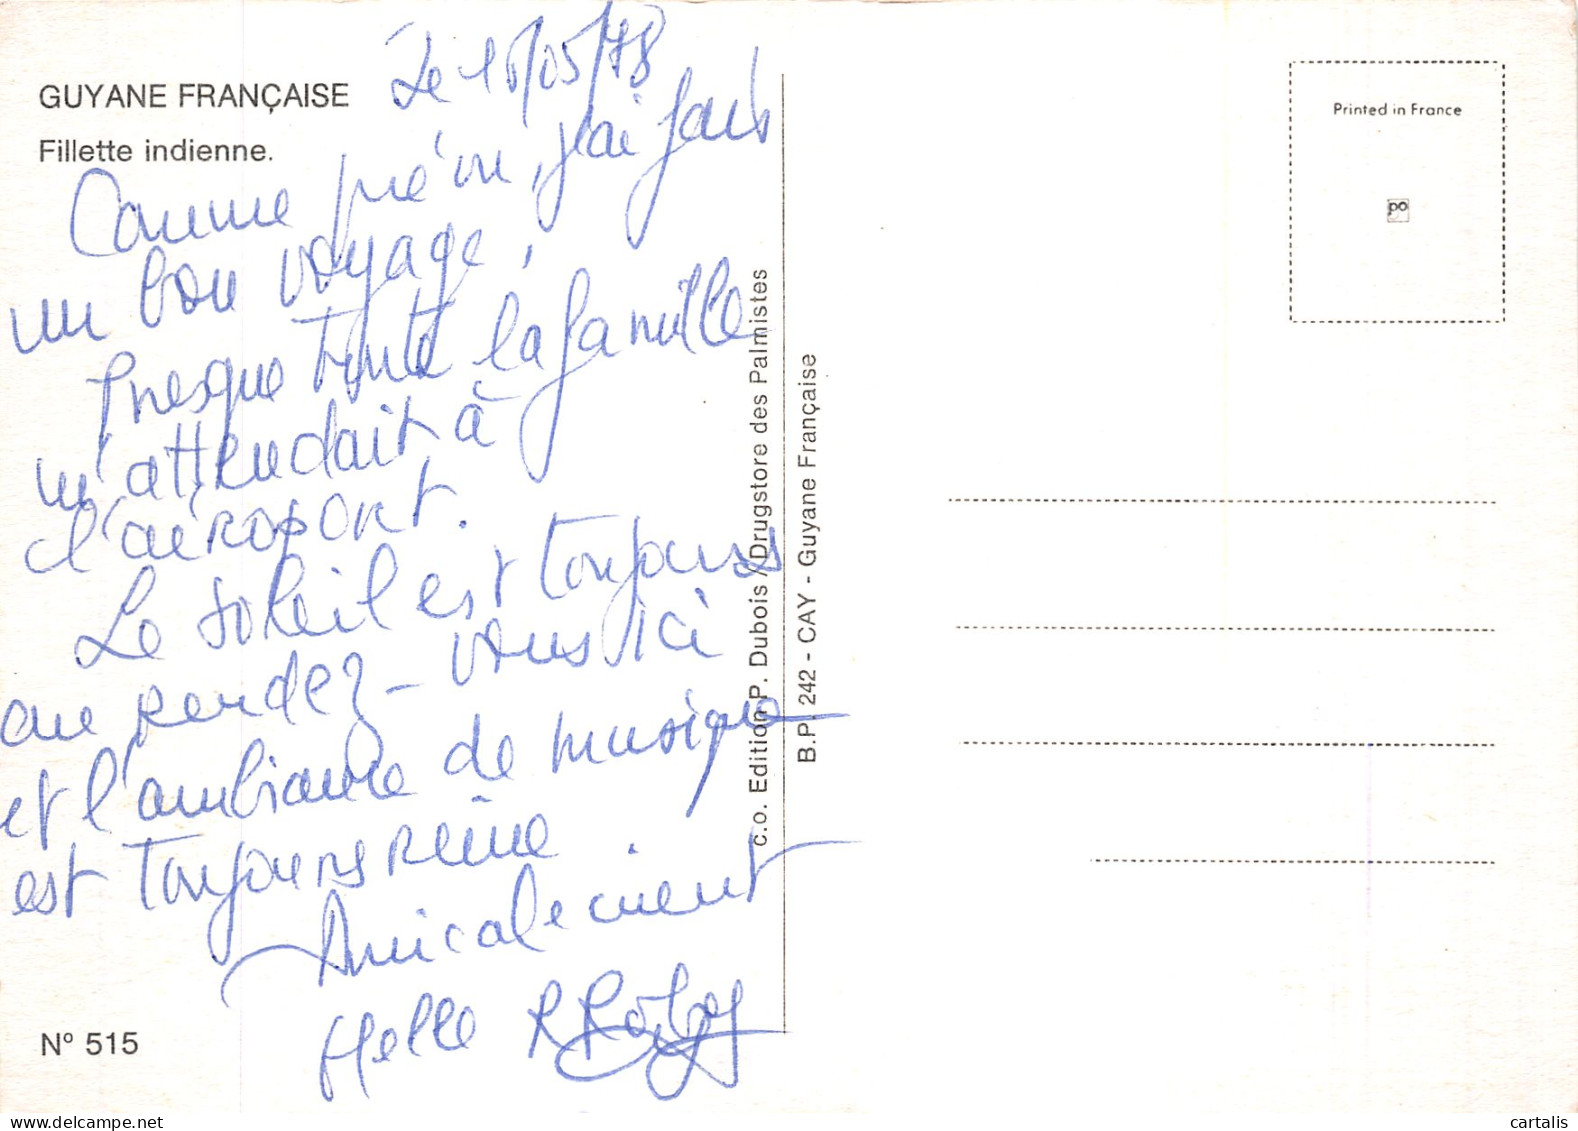 GUYANE FRANÇAISE
Fillette indienne.
Le 15/05/78
Comme prévu, j'ai fais
un bon voyage,
Presque toute la famille
m'attendait à
l'aéroport.
Le soleil est toujours
au rendez-vous ici
et l'ambiance de musique
est toujours reine.
Amicalement
Melle R
N° 515
c.o. Edition P. Dubois / Drugstore des Palmistes
B.P. 242 - CAY - Guyane Française
Printed in France
po
cartalis